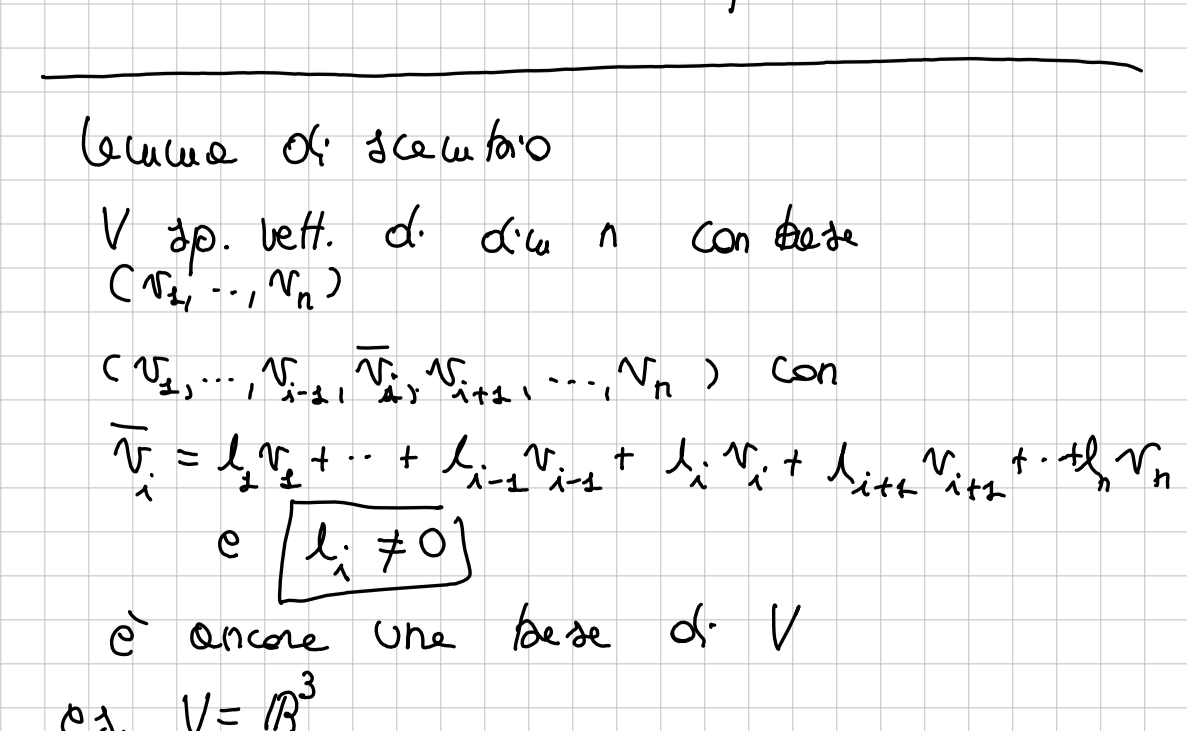 Lemma di scambio
V sp. vett. di dim n con base
(v₁, .., vₙ)
(v₁, ..., vᵢ₋₁, v̅ᵢ, vᵢ₊₁, ..., vₙ) con
v̅ᵢ = l₁v₁ + ·· + lᵢ₋₁vᵢ₋₁ + lᵢvᵢ + lᵢ₊₁vᵢ₊₁ + ·· + lₙvₙ
e lᵢ ≠ 0
è ancora una base di V
es. V = ℝ³